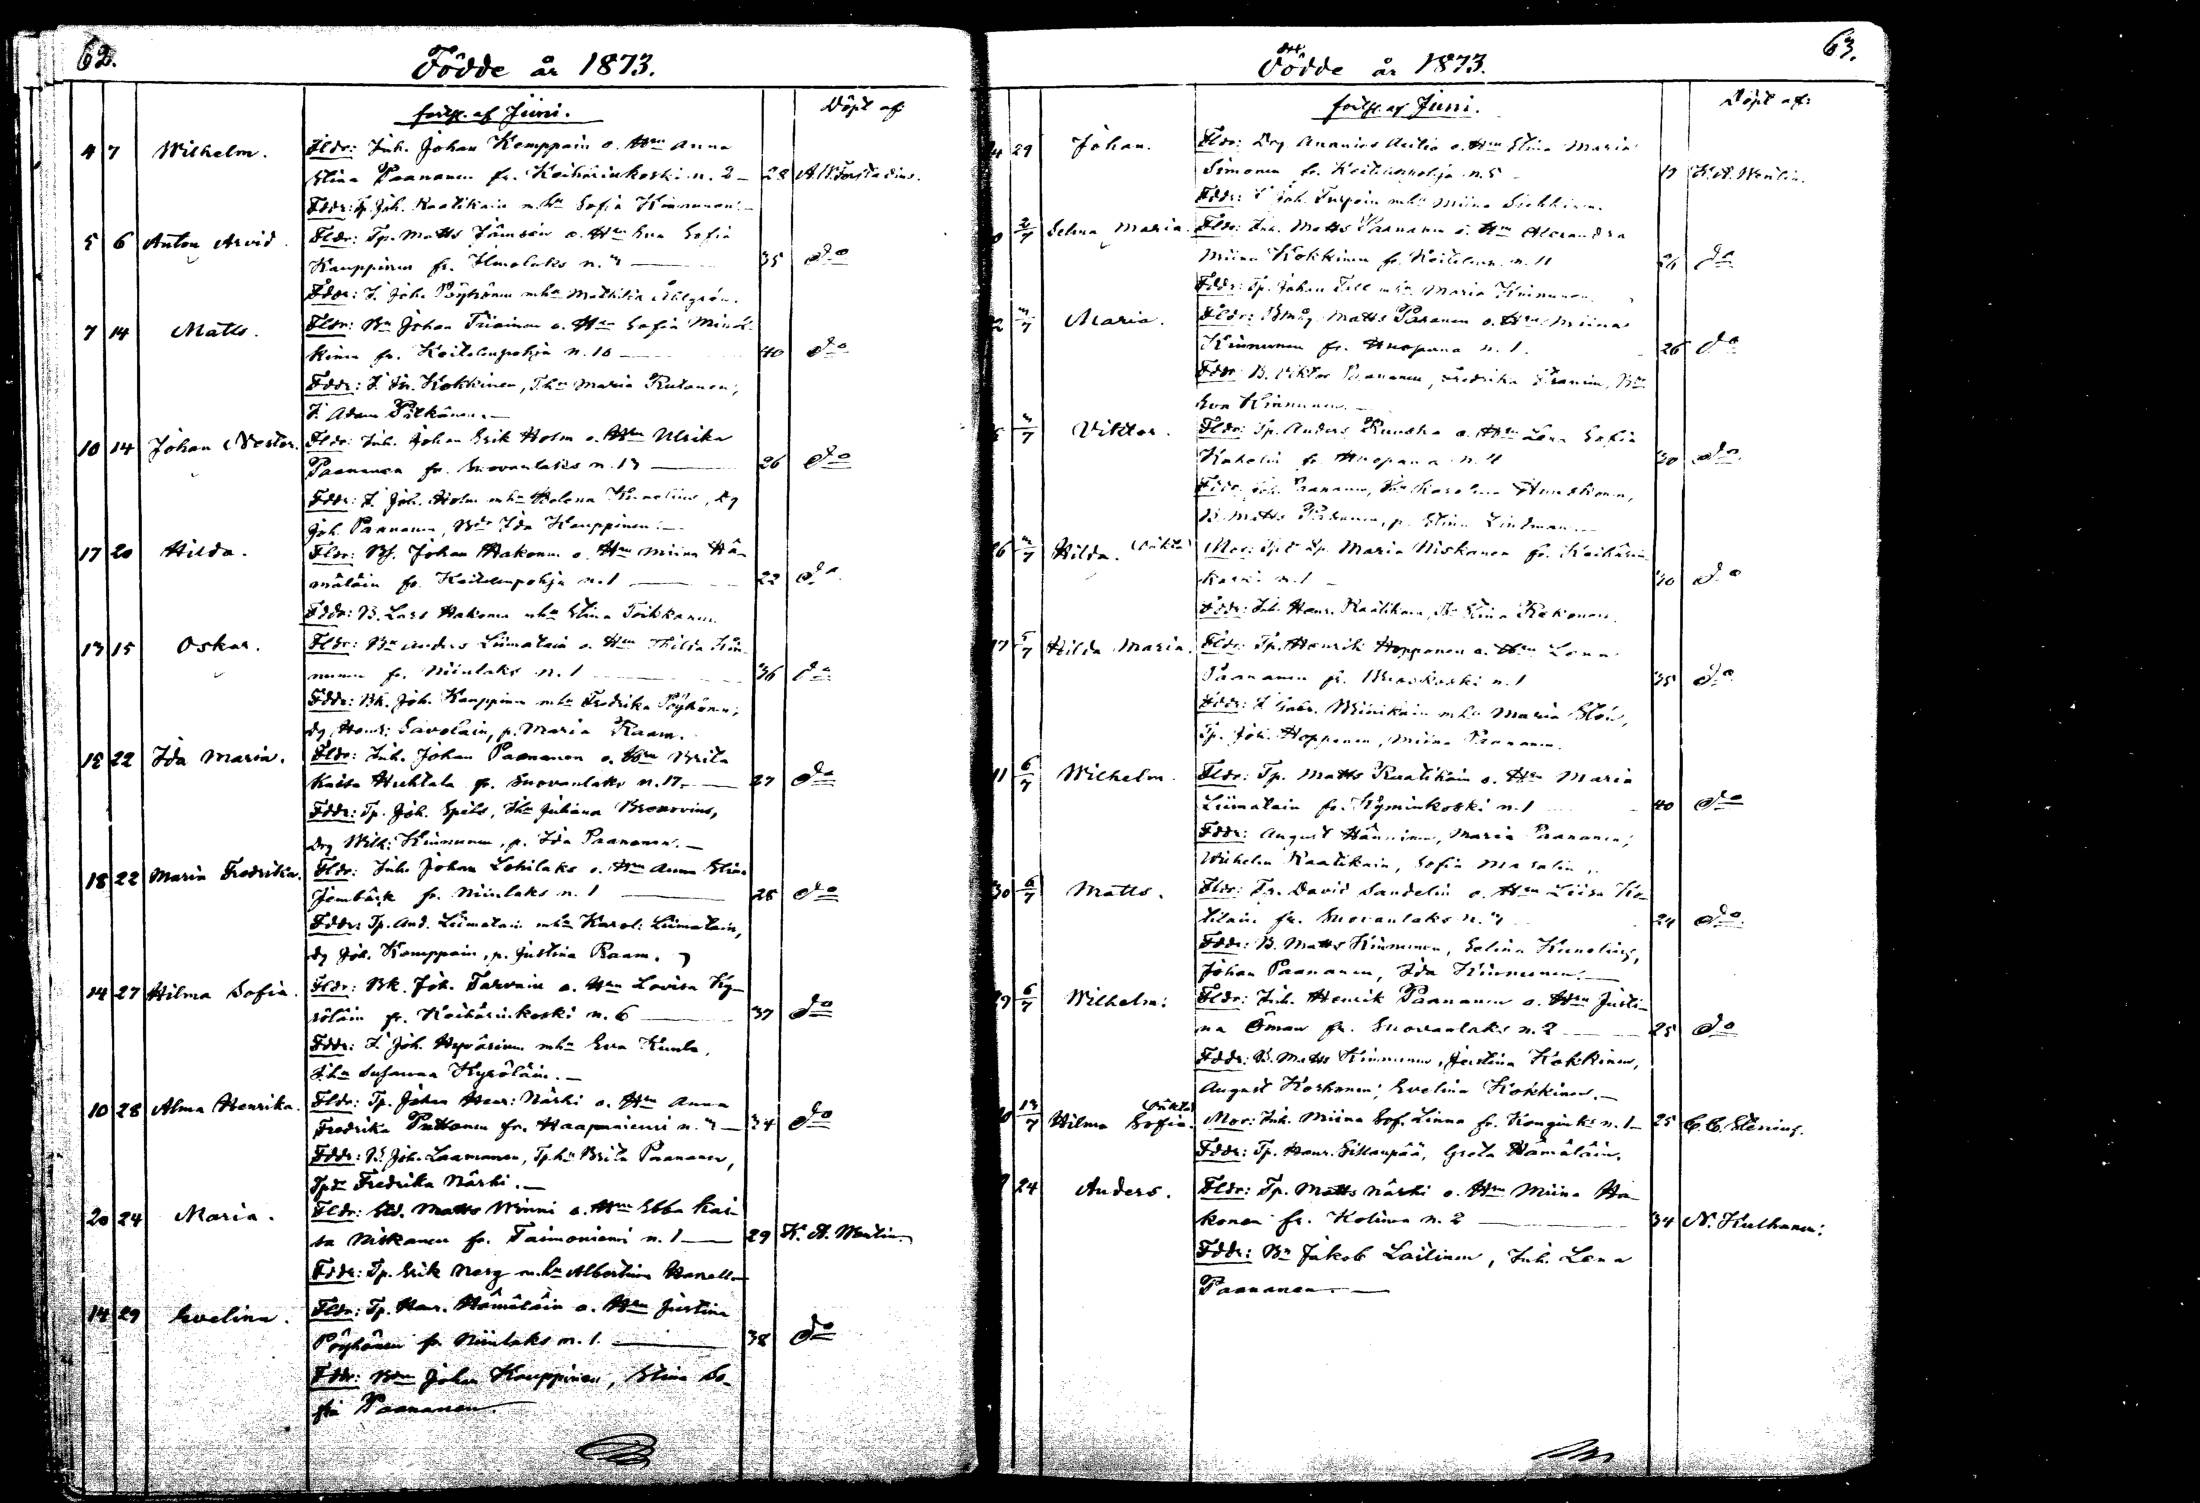 62.
Födde år 1873.
forts. af Juni.
Döpt af:
4 7 Wilhelm. Fldr: Inh. Johan Kemppain o. Hru Anna
Stina Paananen fr. Keihärinkoski n. 2 — 28 A.W. Forstadius.
Fddr: Tp. Joh. Raatikain m. hu Sofia Kinnunen. —
5 6 Anton Arvid. Fldr: Tp. Matts Jämsén o. Hru Eva Sofia
Kauppinen fr. Ilmolaks n. 3 — 35 do
Fddr: I. Joh. Pöyhönen m hu Mathilda
7 14 Matts. Fldr: Bn Johan Tiiainen o. Hru Sofia Mink-
kinen fr. Koitelenpohja n. 10 — 40 do
Fddr: I. Kokkinen, Ihu Maria Rutanen,
I. Adam Pitkänen. —
10 14 Johan Nestor. Fldr: Inh. Johan Erik Holm o. Hru Ulrika
Paananen fr. Suovanlaks n. 13 — 26 do
Fddr: I. Joh. Holm m hu Helena Kunelius, dg
Joh. Paananen, Ida Kauppinen. —
17 20 Hilda. Fldr: Johan Hakonen o. Hru Miina Hä-
mäläin fr. Koitelenpohja n. 1 — 22 do
Fddr: B. Lars Hakonen m hu Stina Toikkanen.
13 15 Oskar. Fldr: Bn Anders Liimatain o. Hru Thilda Kin-
nunen fr. Niinilaks n. 1 36 do
Fddr: Bk. Joh. Kauppinen m hu Fredrika Pöyhönen,
dg Henr: Savolain, p. Maria Raam.
19 22 Ida Maria. Fldr: Inh. Johan Paananen o. Hru Brita
Kaisa Huhtala fr. Suovanlaks n. 17. — 27 do
Fddr: Tp. Joh. Spets, Ihu Juliana Bronovius,
Drg Wilh: Kinnunen, p. Ida Paananen. —
18 22 Maria Fredrika. Fldr: Inh. Johan Lohilaks o. Hru Anna Stina
Jernbäck fr. Niinilaks n. 1 — 28 do
Fddr: Tp. And. Liimatain m hu Karol: Liimatain,
dg Joh. Kemppain, p. Justina Raam.
14 27 Hilma Sofia. Fldr: Bk. Joh. Tarvain o. Hru Lovisa Ky-
röläin fr. Keihärinkoski n. 6 — 37 do
Fddr: I. Joh. Hyvärinen m hu Eva Kunla,
I hu Susanna Kyröläin. —
10 28 Alma Henrika. Fldr: Tp. Johan Henr: Närhi o. Hru Anna
Fredrika Puttonen fr. Haapaniemi n. 3 — 34 do
Fddr: B. Joh. Laamanen, Tp.hu Brita Paananen,
Tpdr Fredrika Närhi. —
20 24 Maria. Fldr: Matts Minni o. Hru Ebba Kai-
sa Niskanen fr. Taimoniemi n. 1 — 29 K. A. Wenlin.
Fddr: Tp. Erik Norg m. hu Albertina
14 29 Evelina. Fldr: Tp. Henr. Hämäläin o. Hru Justina
Pöyhönen fr. Niinilaks n. 1. — 38 do
Fddr: Johan Kauppinen, Stina So-
fia Paananen.
63.
Födde år 1873.
forts. af Juni.
Döpt af:
29 Johan. Fldr: Drg Ananias Autio o. Hru Stina Maria
Simonen fr. Koitelenpohja n. 5 K. A. Wenlin.
Fddr: I. Joh. Turpein m hu Miina
2/7 Selma Maria. Fldr: Inh. Matts Paananen o. Hru Alexandra
Miina Kokkinen fr. Koitelenp. n. 11 26 do
Fddr: Tp. Johan Fell m hu Maria Kinnunen.
3/7 Maria. Fldr: Matts Paananen o. Hru Miina
Kinnunen fr. Huopana n. 1. 26 do
Fddr: B. Viktor Paananen, Fredrika
Eva Kinnunen. —
3/7 Viktor. Fldr: Tp. Anders Ruuska o. Hru Lena Sofia
fr. Huopana n. 4 30 do
Fddr: Joh. Paananen, Karolina
B. Matts Paananen, p. Stina Lindman. —
26 3/7 Hilda. (oäkta) Mor: Maria Niskanen fr. Keihärin-
koski n. 1 — 30 do
Fddr: Inh. Henr. Raatikain, Stina Hakonen.
17 5/7 Hilda Maria. Fldr: Tp. Henrik Hopponen o. Hru Lena
Paananen fr. n. 1 35 do
Fddr: I. Gabr. Minikain m hu Maria
Tp. Joh. Hopponen, Miina Paananen.
11 6/7 Wilhelm. Fldr: Tp. Matts Raatikain o. Hru Maria
Liimatain fr. Kyminkoski n. 1 40 do
Fddr: August Hänninen, Maria Paananen,
Wilhelm Raatikain, Sofia Masalin.
30 6/7 Matts. Fldr: Tp. David Sandelin o. Hru Liisa Ko-
tilain fr. Suovanlaks n. 3 24 do
Fddr: B. Matts Kinnunen, Selina Kunelius,
Johan Paananen, Ida Kinnunen. —
29 6/7 Wilhelm: Fldr: Inh. Henrik Paananen o. Hru Justi-
na Öman fr. Suovanlaks n. 2 — 25 do
Fddr: B. Matts Kinnunen, Justina Kokkinen,
August Korhonen, Evelina Kokkinen. —
13/7 Hilma Sofia. (oäkta) Mor: Inh. Miina Sof. Linna fr. Konginks n. 1 — 25 C. C. Stenius.
Fddr: Tp. Henr. Sillanpää, Greta Hämäläin.
24 Anders. Fldr: Tp. Matts Närhi o. Hru Miina Ha-
konen fr. Kolima n. 2 — 34 N. Kulhanen:
Fddr: Bn Jakob Laitinen, Inh. Lena
Paananen. —